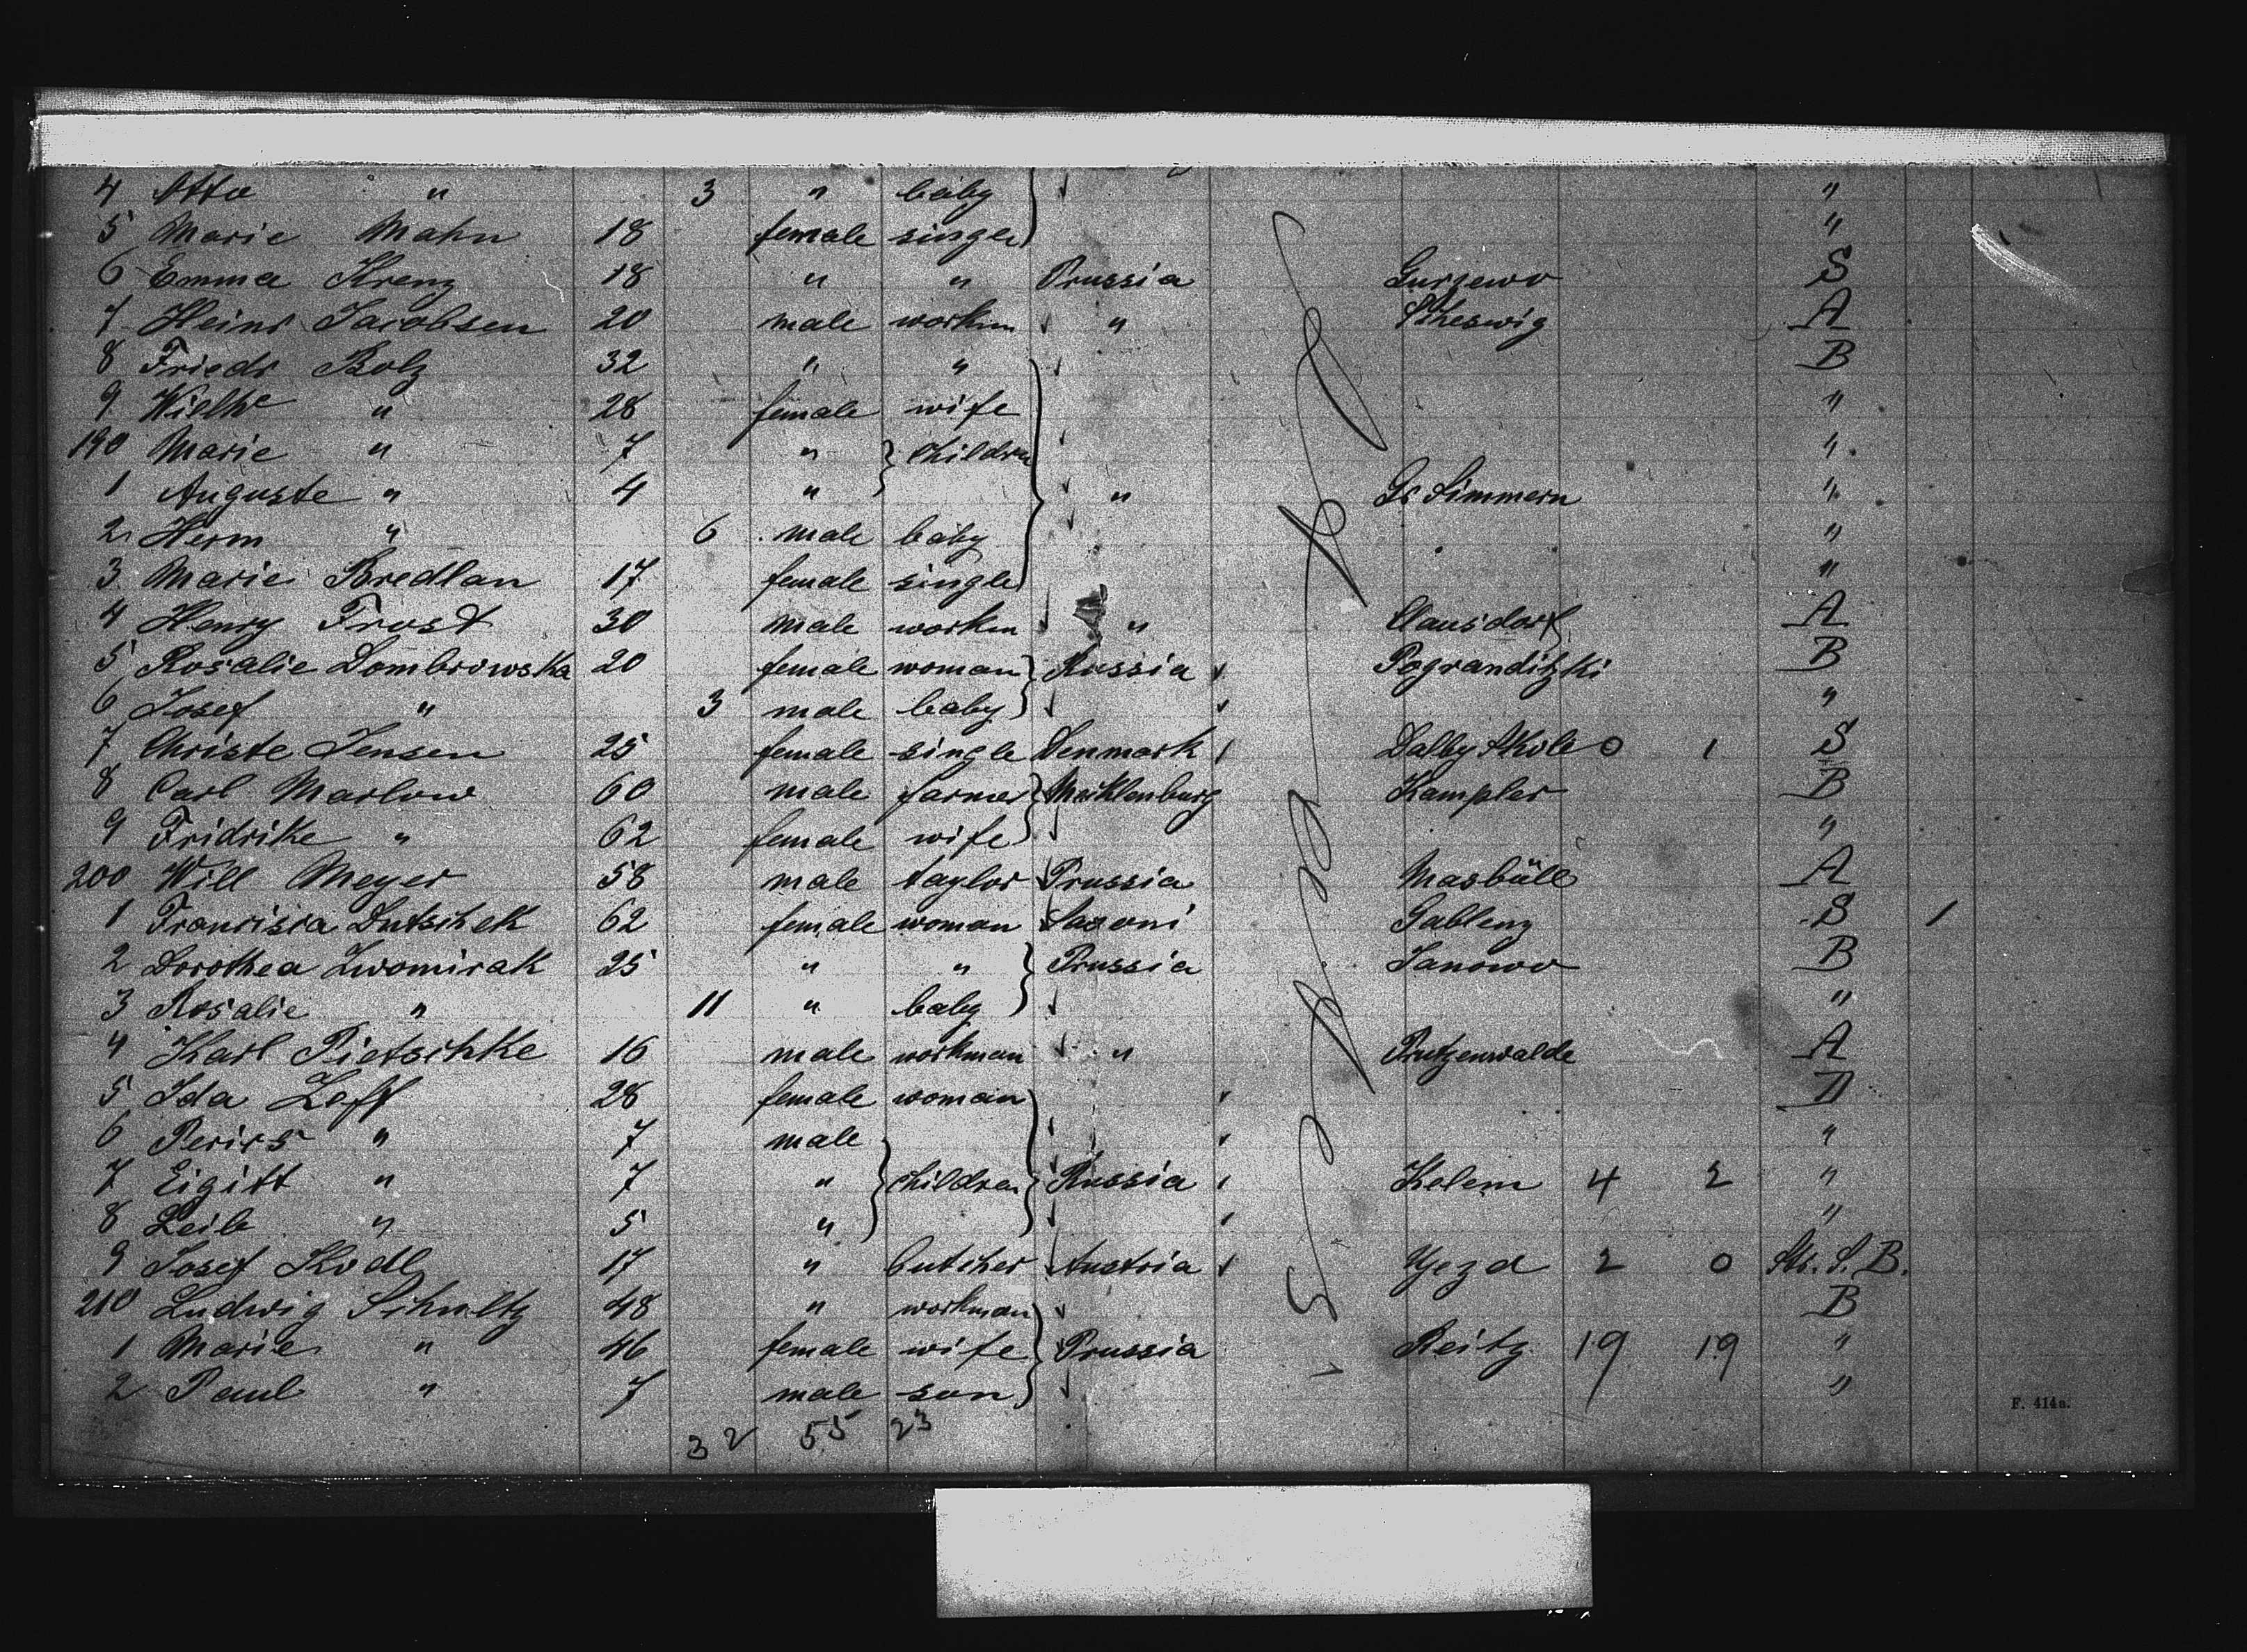 4 Otto " 3 " baby "
5 Marie Mahn 18 female single "
6 Emma Krenz 18 " " Prussia Gurzewo S
7 Heinr Jacobsen 20 male workm " Schleswig A
8 Friedr Bolz 32 " " B
9 Wilhe " 28 female wife "
190 Marie " 7 " children "
1 Auguste " 4 " " Gr Simmern "
2 Herm " 6 male baby "
3 Marie Bredlau 17 female single "
4 Henry Frost 30 male workm " Clausdorf A
5 Rosalie Dombrowska 20 female woman Russia Pogranditzki B
6 Josef " 3 male baby "
7 Christe Jensen 25 female single Denmark Dalby 0 1 S
8 Carl Marlow 60 male farmer Mecklenburg Kampler B
9 Fridrike " 62 female wife "
200 Will Meyer 58 male taylor Prussia Masbüll A
1 Francisca Dutschek 62 female woman Saxoni Gablenz S 1
2 Dorothea Zwomirak 25 " " Prussia Janowo B
3 Rosalie " 11 " baby "
4 Karl Pietschke 16 male workman " Prutzenwalde A
5 Ida Leff 28 female woman
6 " 7 male "
7 Eigitt " 7 " children Russia Kelem 4 2 "
8 Leib " 5 " "
9 Josef Kodl 17 " butcher Austria Yezd 2 0 B.
210 Ludwig Schultz 48 " workman B
1 Marie " 46 female wife Prussia Reitz 19 19 "
2 Paul " 7 male son "
32 55 23
F. 414a.